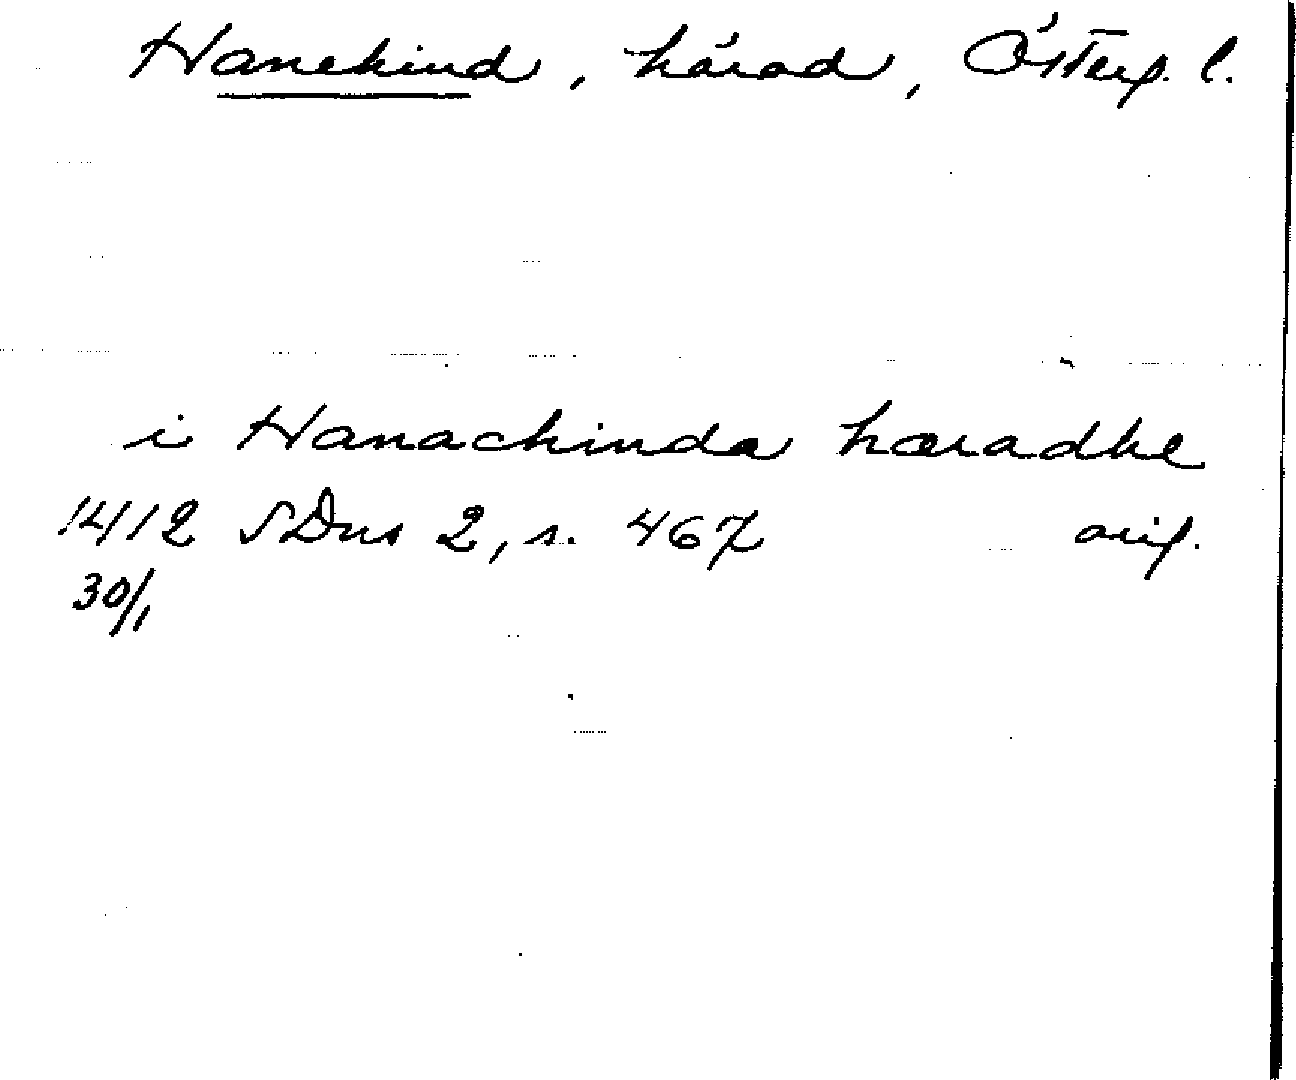 Hanekind, härad, Österg. l.
i Hanachinda hæradhe
1412 SDns 2, s. 467 orig.
30/1